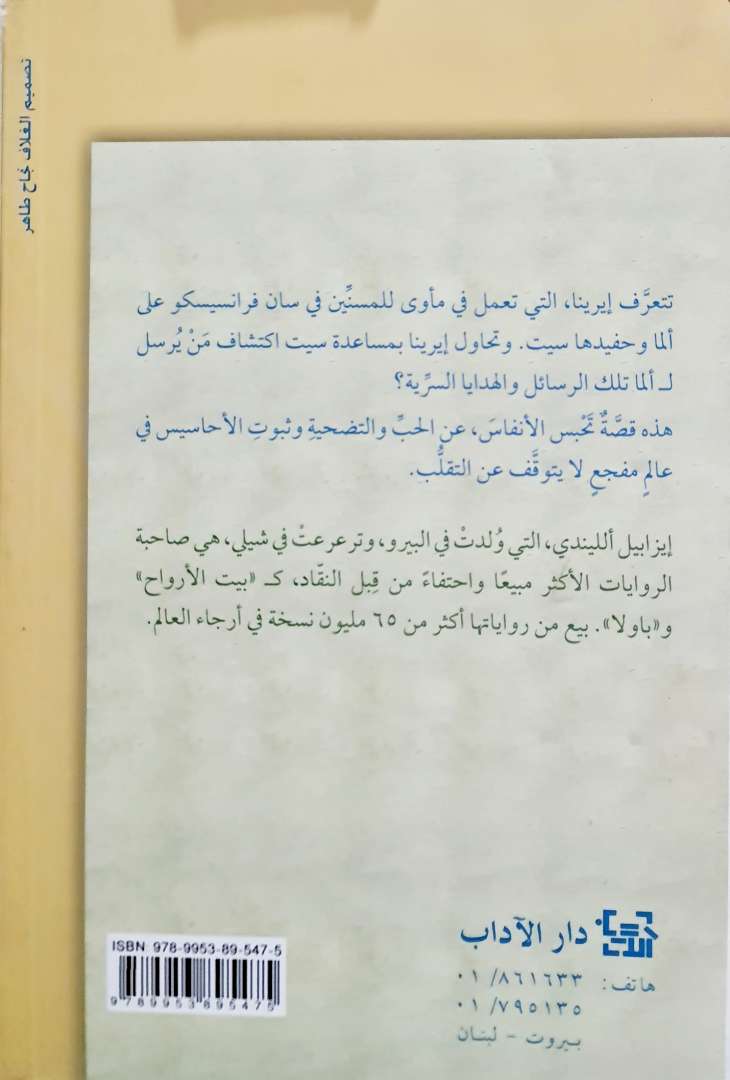 تصميم الغلاف نجاح طاهر
تتعرَّف إيرينا، التي تعمل في مأوى للمسنِّين في سان فرانسيسكو على
ألما وحفيدها سيت. وتحاول إيرينا بمساعدة سيت اكتشاف مَنْ يُرسل
لـ ألما تلك الرسائل والهدايا السرِّية؟
هذه قصَّةٌ تَحْبس الأنفاسَ، عن الحبِّ والتضحيةِ وثبوتِ الأحاسيس في
عالمٍ مفجعٍ لا يتوقَّف عن التقلُّب.
إيزابيل ألليندي، التي وُلدتْ في البيرو، وترعرعتْ في شيلي، هي صاحبة
الروايات الأكثر مبيعًا واحتفاءً من قِبل النقّاد، كـ «بيت الأرواح»
و«باولا». بيع من رواياتها أكثر من ٦٥ مليون نسخة في أرجاء العالم.
دار الآداب
هاتف: ٠١/٨٦١٦٣٣
٠١/٧٩٥١٣٥
بيروت - لبنان
ISBN 978-9953-89-547-5
9 789953 895475